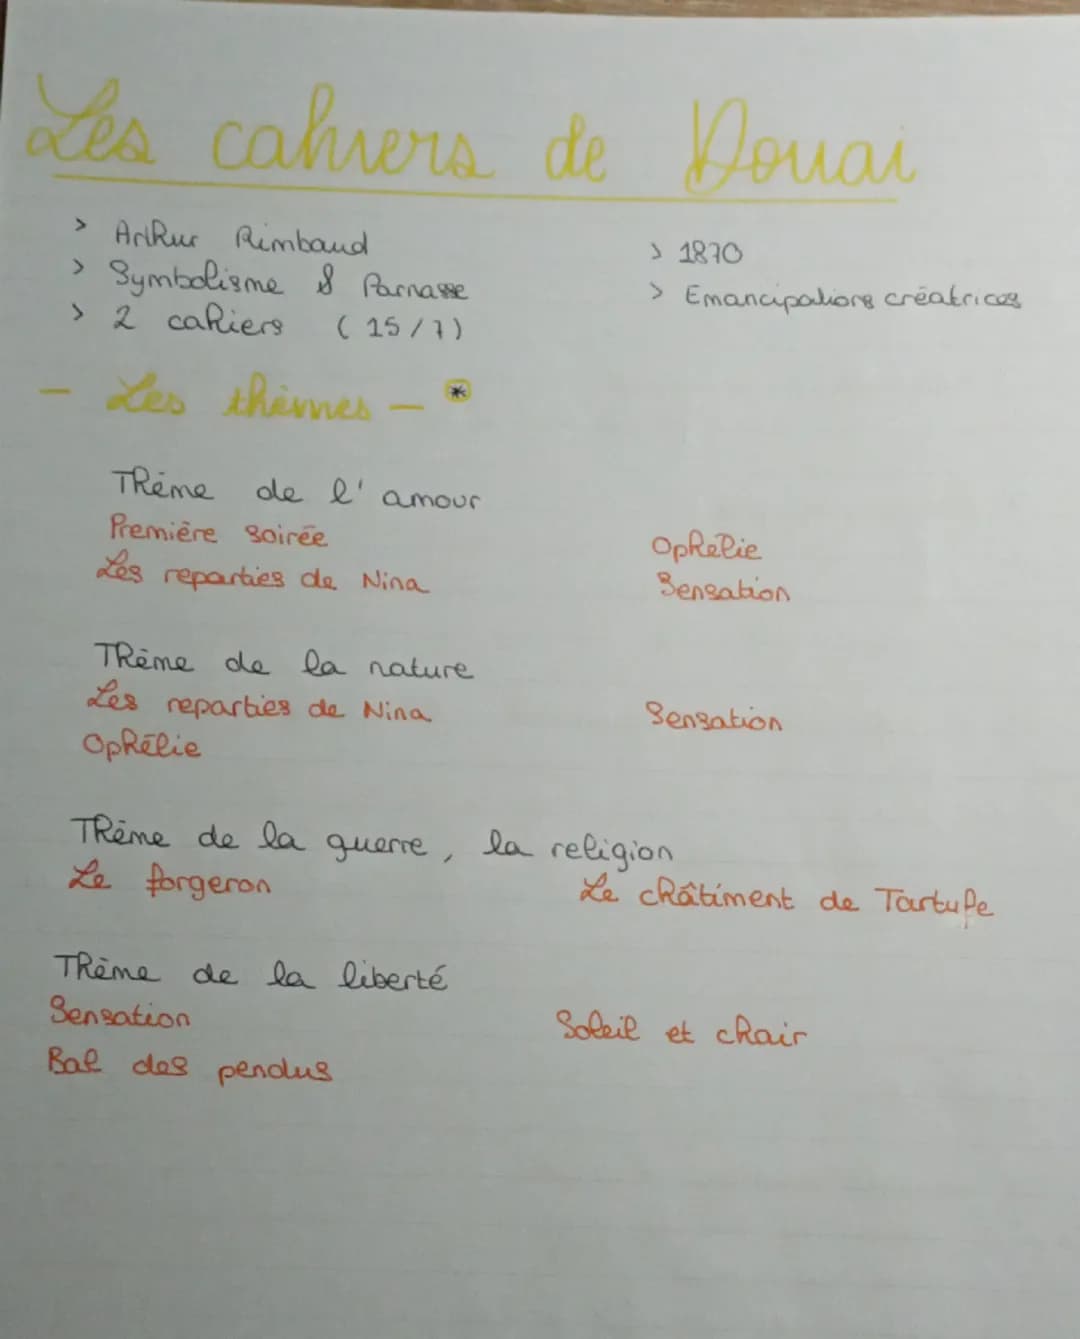 Les cahiers de Douai
> Arthur Rimbaud
> 1870
> Symbolisme & Parnasse
> Emancipations créatrices
> 2 cahiers (15/7)
- Les thèmes - *
Thème de l'amour
Première soirée
Ophélie
Les reparties de Nina
Sensation
Thème de la nature
Les reparties de Nina
Sensation
Ophélie
Thème de la guerre, la religion
Le forgeron
Le châtiment de Tartufe
Thème de la liberté
Sensation
Soleil et chair
Bal des pendus